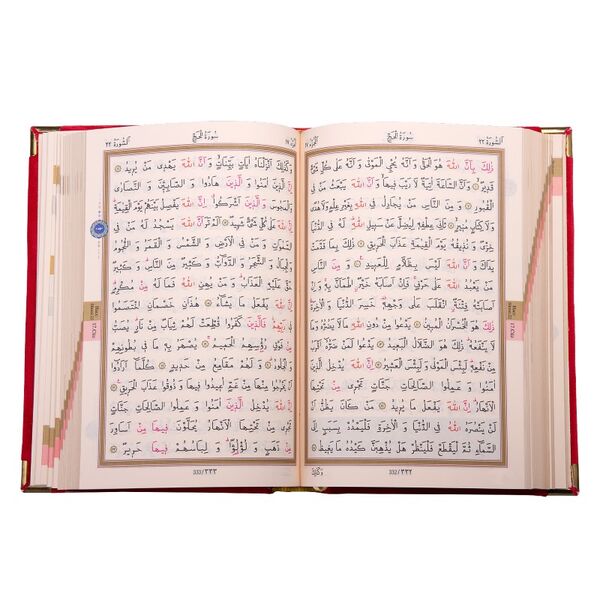 اَلسُّورَةُ ٢٢ سُورَةُ الْحَجِّ اَلْجُزْءُ ١٧
ذٰلِكَ بِاَنَّ اللّٰهَ هُوَ الْحَقُّ وَاَنَّهُ يُحْيِ الْمَوْتٰى وَاَنَّهُ عَلٰى كُلِّ شَيْءٍ
قَدِيرٌ وَاَنَّ السَّاعَةَ اٰتِيَةٌ لَا رَيْبَ فِيهَا وَاَنَّ اللّٰهَ يَبْعَثُ مَنْ فِي
الْقُبُورِ وَمِنَ النَّاسِ مَنْ يُجَادِلُ فِي اللّٰهِ بِغَيْرِ عِلْمٍ وَلَا هُدًى
وَلَا كِتَابٍ مُنِيرٍ ثَانِيَ عِطْفِهِ لِيُضِلَّ عَنْ سَبِيلِ اللّٰهِ لَهُ فِي الدُّنْيَا
خِزْيٌ وَنُذِيقُهُ يَوْمَ الْقِيٰمَةِ عَذَابَ الْحَرِيقِ ذٰلِكَ بِمَا قَدَّمَتْ
يَدَاكَ وَاَنَّ اللّٰهَ لَيْسَ بِظَلَّامٍ لِلْعَبِيدِ وَمِنَ النَّاسِ
مَنْ يَعْبُدُ اللّٰهَ عَلٰى حَرْفٍ فَاِنْ اَصَابَهُ خَيْرٌ اطْمَاَنَّ بِهِ وَاِنْ
اَصَابَتْهُ فِتْنَةٌ انْقَلَبَ عَلٰى وَجْهِهِ خَسِرَ الدُّنْيَا وَالْاٰخِرَةَ
ذٰلِكَ هُوَ الْخُسْرَانُ الْمُبِينُ يَدْعُوا مِنْ دُونِ اللّٰهِ مَا لَا يَضُرُّهُ وَمَا
لَا يَنْفَعُهُ ذٰلِكَ هُوَ الضَّلَالُ الْبَعِيدُ يَدْعُوا لَمَنْ ضَرُّهُ اَقْرَبُ
مِنْ نَفْعِهِ لَبِئْسَ الْمَوْلٰى وَلَبِئْسَ الْعَشِيرُ اِنَّ اللّٰهَ يُدْخِلُ
الَّذِينَ اٰمَنُوا وَعَمِلُوا الصَّالِحَاتِ جَنَّاتٍ تَجْرِي مِنْ تَحْتِهَا
الْاَنْهَارُ اِنَّ اللّٰهَ يَفْعَلُ مَا يُرِيدُ مَنْ كَانَ يَظُنُّ اَنْ لَنْ
يَنْصُرَهُ اللّٰهُ فِي الدُّنْيَا وَالْاٰخِرَةِ فَلْيَمْدُدْ بِسَبَبٍ اِلَى
السَّمَاءِ ثُمَّ لْيَقْطَعْ فَلْيَنْظُرْ هَلْ يُذْهِبَنَّ كَيْدُهُ مَا يَغِيظُ
332/٣٣٢ وَكَذٰلِكَ
اَلسُّورَةُ ٢٢ سُورَةُ الْحَجِّ اَلْجُزْءُ ١٧
وَكَذٰلِكَ اَنْزَلْنَاهُ اٰيَاتٍ بَيِّنَاتٍ وَاَنَّ اللّٰهَ يَهْدِي مَنْ يُرِيدُ
اِنَّ الَّذِينَ اٰمَنُوا وَالَّذِينَ هَادُوا وَالصَّابِئِينَ وَالنَّصَارٰى
وَالْمَجُوسَ وَالَّذِينَ اَشْرَكُوا اِنَّ اللّٰهَ يَفْصِلُ بَيْنَهُمْ يَوْمَ الْقِيٰمَةِ
اِنَّ اللّٰهَ عَلٰى كُلِّ شَيْءٍ شَهِيدٌ اَلَمْ تَرَ اَنَّ اللّٰهَ يَسْجُدُ لَهُ مَنْ فِي
السَّمٰوَاتِ وَمَنْ فِي الْاَرْضِ وَالشَّمْسُ وَالْقَمَرُ وَالنُّجُومُ
وَالْجِبَالُ وَالشَّجَرُ وَالدَّوَابُّ وَكَثِيرٌ مِنَ النَّاسِ وَكَثِيرٌ
حَقَّ عَلَيْهِ الْعَذَابُ وَمَنْ يُهِنِ اللّٰهُ فَمَا لَهُ مِنْ مُكْرِمٍ
اِنَّ اللّٰهَ يَفْعَلُ مَا يَشَاءُ هٰذَانِ خَصْمَانِ اخْتَصَمُوا
فِي رَبِّهِمْ فَالَّذِينَ كَفَرُوا قُطِّعَتْ لَهُمْ ثِيَابٌ مِنْ نَارٍ يُصَبُّ
مِنْ فَوْقِ رُؤُسِهِمُ الْحَمِيمُ يُصْهَرُ بِهِ مَا فِي بُطُونِهِمْ
وَالْجُلُودُ وَلَهُمْ مَقَامِعُ مِنْ حَدِيدٍ كُلَّمَا اَرَادُوا
اَنْ يَخْرُجُوا مِنْهَا مِنْ غَمٍّ اُعِيدُوا فِيهَا وَذُوقُوا عَذَابَ الْحَرِيقِ
اِنَّ اللّٰهَ يُدْخِلُ الَّذِينَ اٰمَنُوا وَعَمِلُوا الصَّالِحَاتِ جَنَّاتٍ
تَجْرِي مِنْ تَحْتِهَا الْاَنْهَارُ يُحَلَّوْنَ فِيهَا مِنْ اَسَاوِرَ
مِنْ ذَهَبٍ وَلُؤْلُؤًا وَلِبَاسُهُمْ فِيهَا حَرِيرٌ
333/٣٣٣